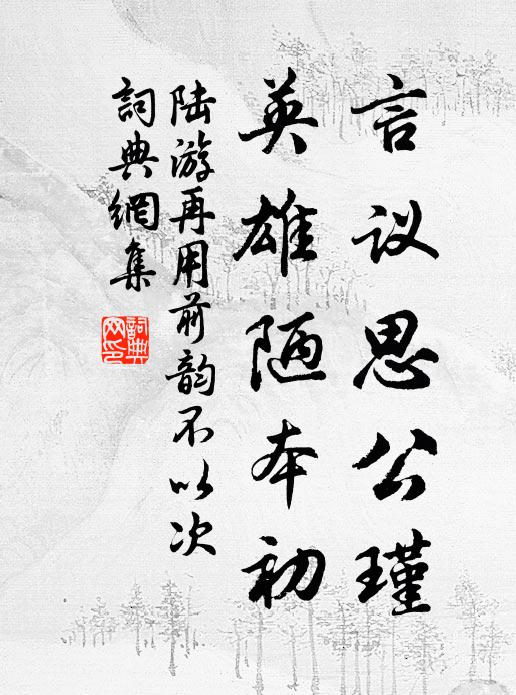 言议思公瑾
英雄陋本初
陆游再用前韵不以次
詞典網集
詞典
网印